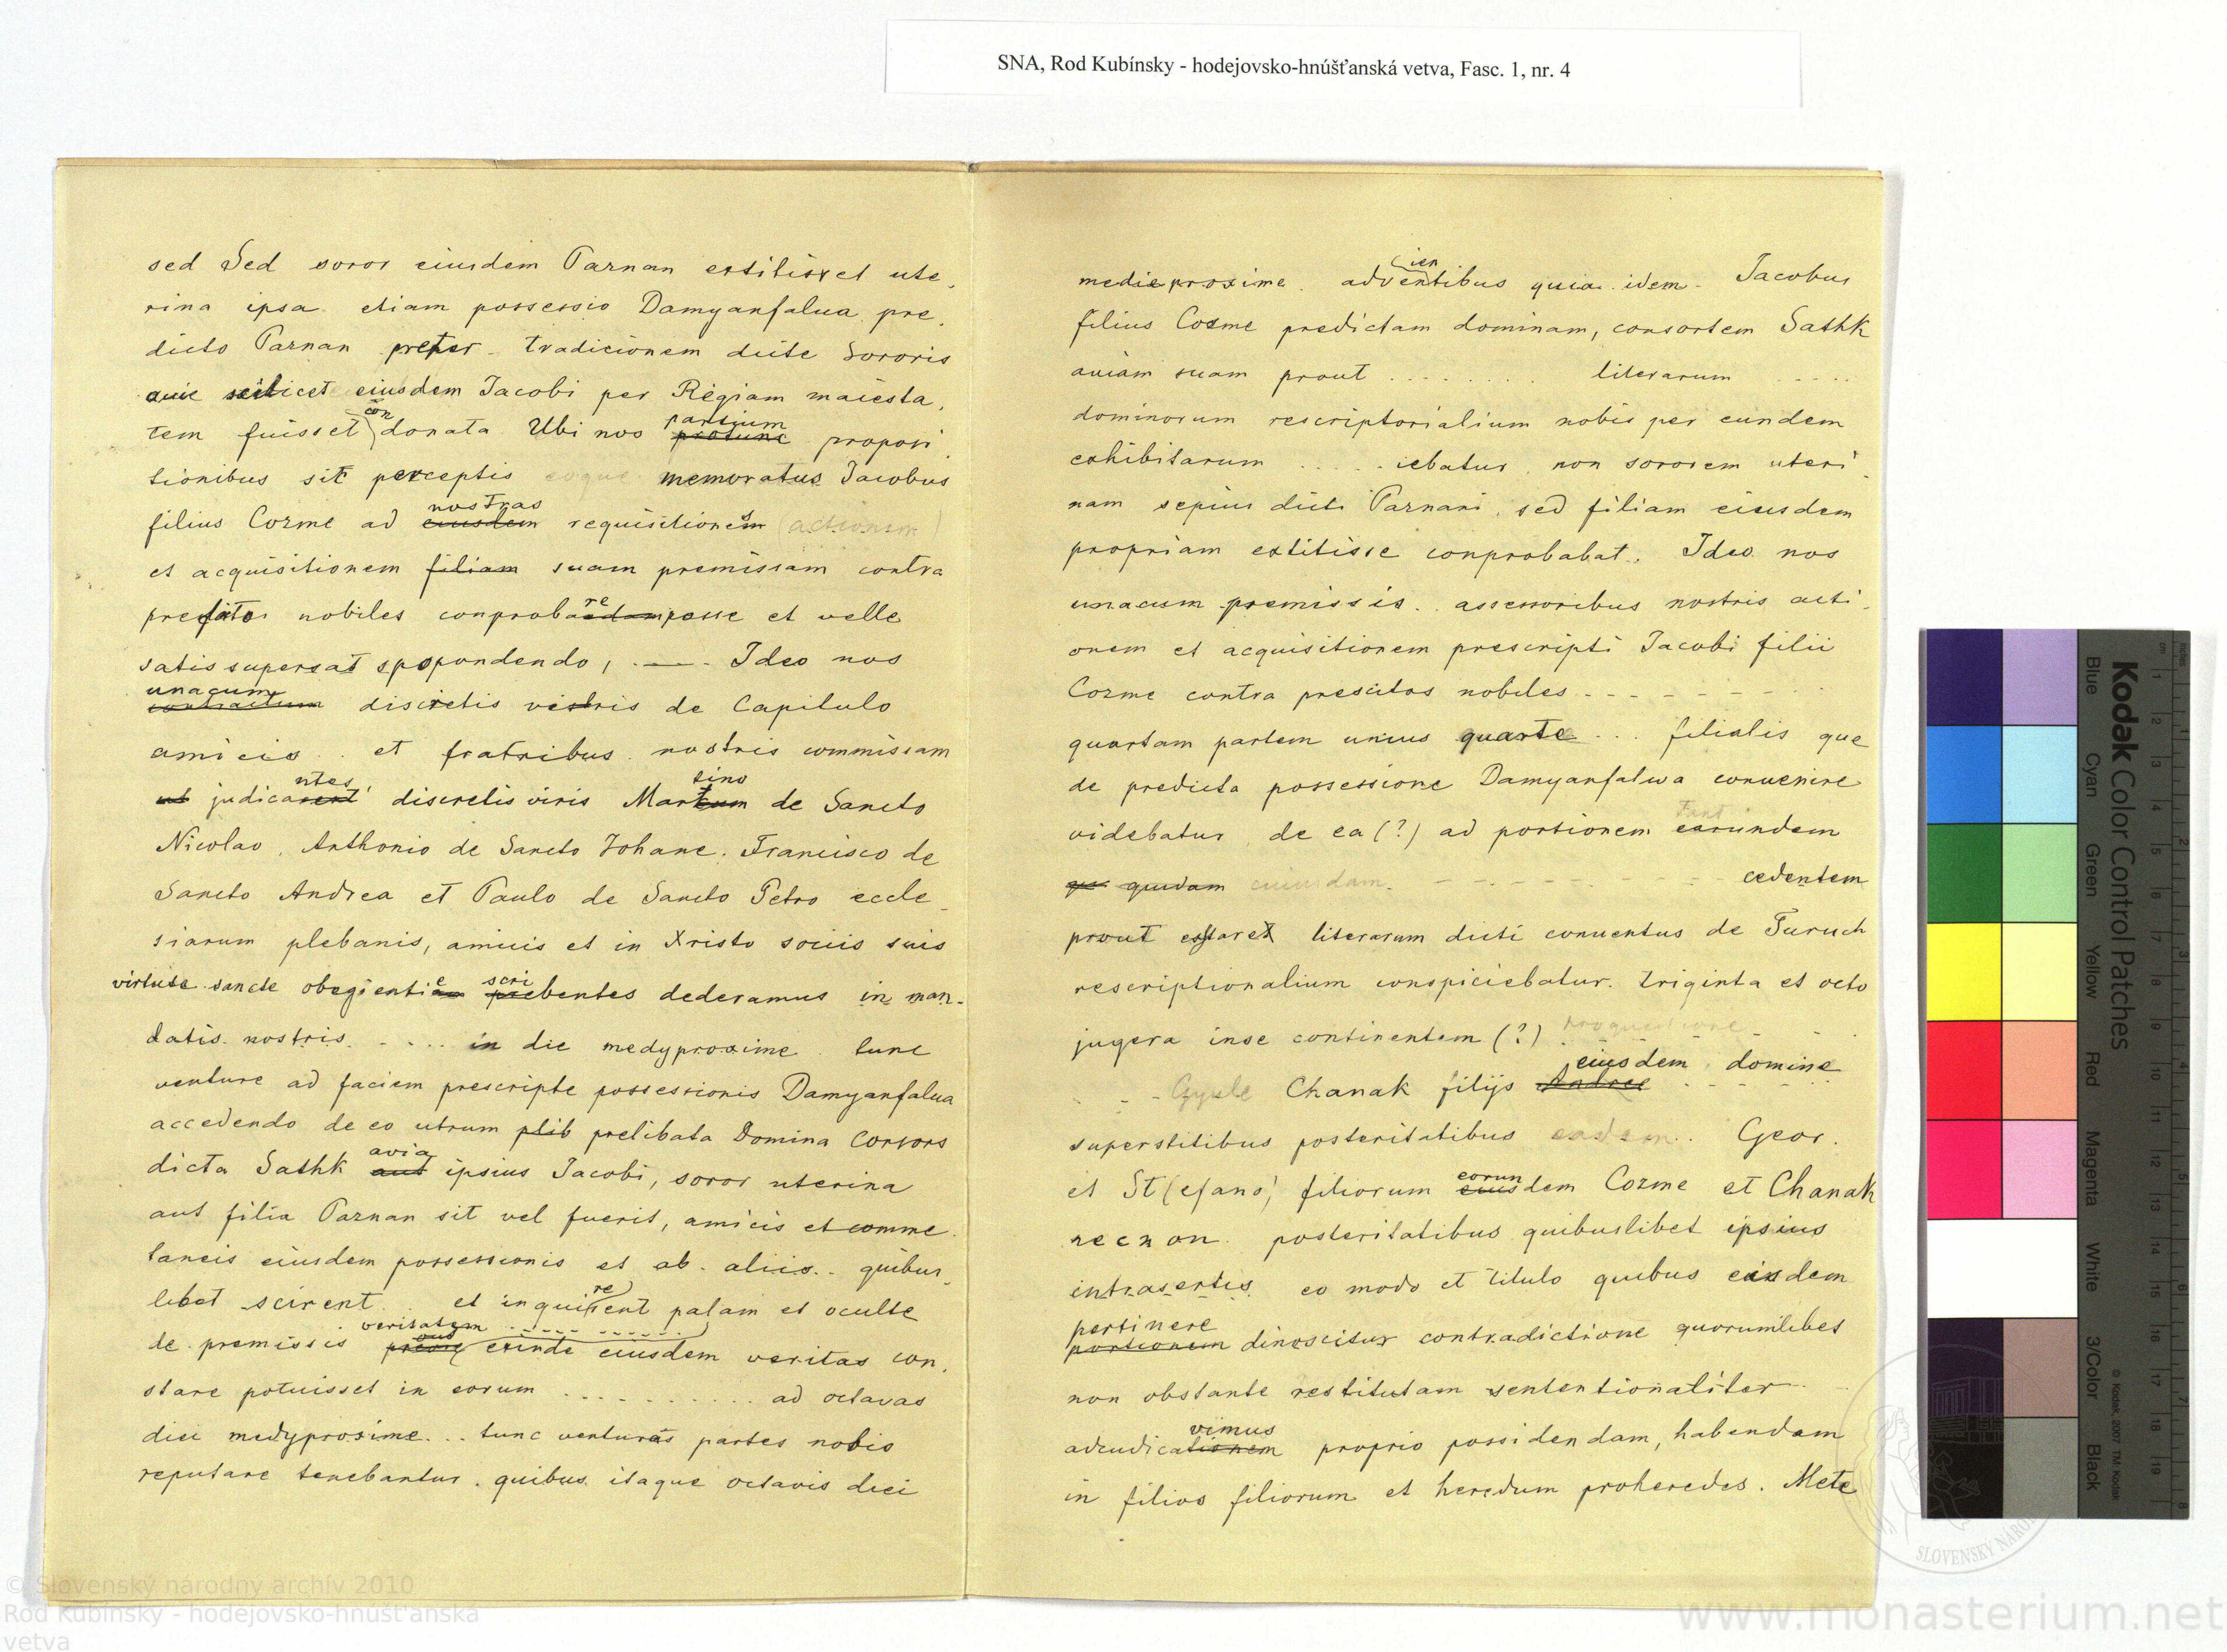 SNA, Rod Kubínsky - hodejovsko-hnúšťanská vetva, Fasc. 1, nr. 4
sed Sed soror eiusdem Parnan extitisset ute,
rina ipsa etiam possessio Damyanfalua pre,
dicto Parnan preter tradicionem dicte Sororis
auie scilicet eiusdem Jacobi per Regiam maiesta,
con
partium
tem fuisset donata Ubi nos protunc proposi
tionibus sit perceptis eoque memoratus Jacobus
nostras
filius Cozme ad eiusdem requisitionem (actionem)
et acquisitionem filiam suam premissam contra
re
prefatos nobiles conprobaedam posse et velle
satis superat spopondendo, . — . Ideo nos
unacum
contractum discretis vestris de Capitulo
amicis . et fratribus nostris commissam
ntes
tino
ut judicarent discretis viris Martium de Sancto
Nicolao, Anthonio de Sancto Johane, Francisco de
Sancto Andrea et Paulo de Sancto Petro eccle
siarum plebanis, amicis et in Xristo sociis suis
e scri
virtute sancte obegientiam prebentes dederamus in man-
datis nostris . - . . . in die medyproxime . tunc
venture ad faciem prescripte possessionis Damyanfalua
accedendo de eo utrum plib prelibata Domina Consors
avia
dicta Sathk aut ipsius Jacobi, soror uterina
aut filia Parnan sit vel fuerit, amicis et comme
taneis eiusdem possessionis et ab . aliis . . quibus,
re
libet scirent . . et inquirent palam et occulte
veritatem . - - - - - - - -
de premissis exinde eiusdem veritas con,
stare potuisset in eorum . . . . . . . . . . ad octavas
diei medyproxime . . . tunc venturas partes nobis
reputare tenebantur . quibus itaque octavis diei
ien
medie proxime . adventibus quia idem - Jacobus
filius Cosme predictam dominam, consortem Sathk
auiam suam prout . . . . . . . . literarum . . . . .
dominorum rescriptorialium nobis per eundem
exhibitarum . . . . . iebatur, non sororem uteri
nam sepius dicti Parnani, sed filiam eiusdem
propriam extitisse conprobabat. Ideo nos
unacum premissis . . assessoribus nostris acti,
onem et acquisitionem prescripti Jacobi filii
Cozme contra prescitos nobiles - - - - - - - -
quartam partem unius quarte . . . filialis que
de predicta possessione Damyanfalwa conuenire
videbatur, de ea (?) ad portionem earundem
qu quidam cuiusdam . - - - - - - - - cedentem
prout extaret literarum dicti conuentus de Turuch
rescriptionalium conspiciebatur . triginta et octo
jugera inse continentem (?) .
eiusdem, domine
- - Gyule Chanak filijs Andree . - - - -
superstitibus posteritatibus eadem . . Geor.
eorun
et St(efano) filiorum eiusdem Cozme et Chanak
necnon . posteritatibus quibuslibet ipsius
intrasertis eo modo et titulo quibus eisdem
pertinere
portionem dinoscitur contradictione quorumlibet
non obstante restitutam sententionaliter
vimus
adiudicationem proprio possidendam, habendam
in filios filiorum et heredum proheredes . Mete
Kodak Color Control Patches
Blue Cyan Green Yellow Red Magenta White 3/Color Black
© Kodak 2007 TM: Kodak
© Slovenský národný archív 2010
Rod Kubínsky - hodejovsko-hnúšťanská
vetva
www.monasterium.net